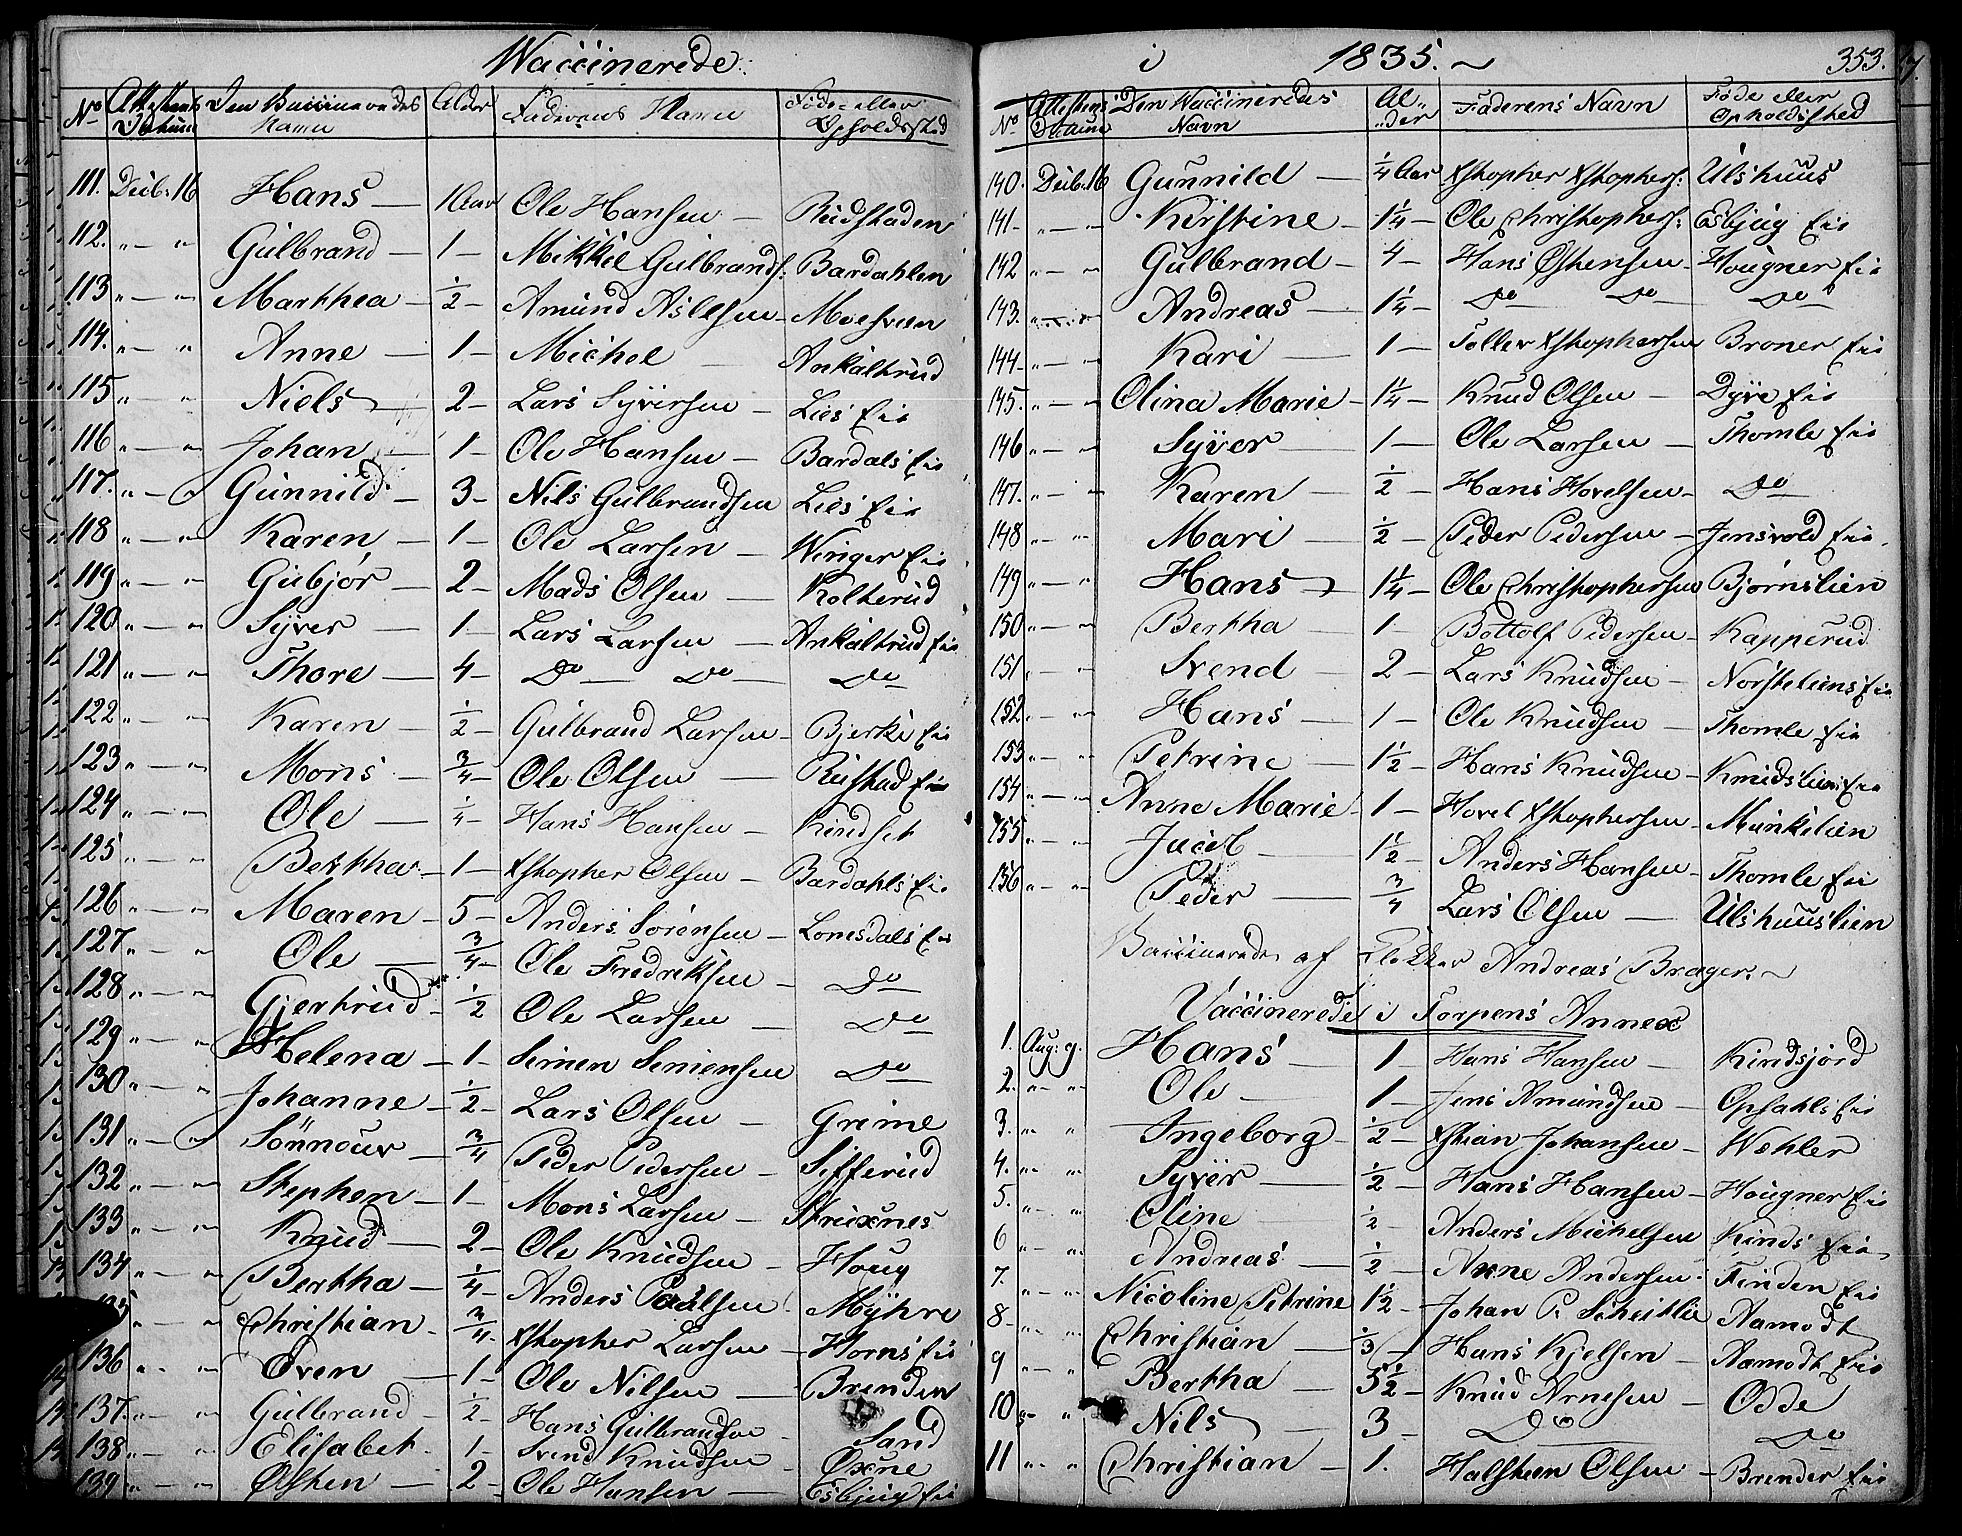 Waccinerede
No Attestens Datum Den Vaccineredes Navn Alder Faderens Navn Føde- eller Opholdssted
111. Decb: 16 Hans — 1 Aar Ole Hansen — Rudstaden
112. " — " Gulbrand — 1 — Mikkel Gulbrands: Bardahlen
113 " — " Marthea — 1/2 — Amund Aslesen — Moesveen
114. " — " Anne — 1 — Michel — Ankaltrud
115 " — " Niels — 2 — Lars Syversen — Lies Eie
116 " — " Johan — 1 — Ole Hansen — Bardals Eie
117. " — " Gunnild — 3 — Nils Gulbrandsen Lies Eie
118 " — " Karen — 1 — Ole Larsen — Winger Eie
119 " — " Gubjør — 2 — Mads Olsen — Kolterud
120 " — " Syver — 1 — Lars Larsen — Ankaltrud Eie
121 " — " Thore — 4 — Do — Do — Do
122 " — " Karen — 1/2 — Gulbrand Larsen — Bjerke Eie
123 " — " Mons — 3/4 — Ole Olsen — Rustad Eie
124 " — " Ole — 1/4 — Hans Hansen — Kindset
125 " — " Bertha — 1 — Xstopher Olsen — Bardahls Eie
126 " — " Maren — 5 — Anders Sørensen — Lonesdals Eie
127 " — " Ole — 3/4 — Ole Fredriksen — Do
128 " — " Gjertrud — 1/2 Ole Larsen — Do
129 " — " Helena — 1 — Simen Simensen Do
130 " — " Johanne — 1/2 — Lars Olsen — Grime
131 " — " Sønnouv — 3/4 Peder Pedersen — Sifferud
132 " — " Stephen — 1 — Mons Larsen — Struxnes
133 " — " Knud — 2 — Ole Knudsen — Houg
134 " — " Bertha — 1/4 — Anders Paulsen Myhre
135 " — " Christian — 3/4 — Xstopher Larsen — Horns Eie
136 " — " Even — 1 — Ole Nilsen — Brenden
137 " — " Gulbrand — 1/2 — Hans Gulbrandsen — Sand
138 " — " Elisabet — 1 — Svend Knudsen — Øxne
139 " — " Østen — 2 — Ole Hansen — Esbjug Eie
i 1835. 353.
No Attestens Datum Den Waccineredes Navn Alder Faderens Navn Føde eller Opholdssted
140. Decb. 16 Gunnild — 1/4 Aar Xstopher Xstophers: Ulshuus
141 — " — " Kirstine — 1 1/4 — Ole Christophers: Esbjug Eie
142 " — " Gulbrand — 4 — Hans Østensen — Hougner Eie
143. " — " Andreas — 1 1/4 — Do Do Do
144 — " — " Kari — 1 — Toller Xstophersen Broner Eie
145. " — " Olina Marie — 1 1/4 — Knud Olsen — Dyve Eie
146 " — " Syver — 1 — Ole Larsen — Thomle Eie
147. " — " Karen — 1/2 — Hans Hovelsen — Do
148 " — " Mari — 1/2 — Peder Pedersen — Jensvold Eie
149 " — " Hans — 1 1/4 — Ole Christophersen Bjørnslien
150 " — " Bertha — 1 — Bottolf Pedersen — Kapperud
151 " — " Svend — 2 — Lars Knudsen — Norsteliens Eie
152 " — " Hans — 1 — Ole Knudsen — Thomle Eie
153 " — " Petrine — 1 1/2 — Hans Knudsen — Knudslien Eie
154 " — " Anne Marie 1 — Hovel Xstophersen — Munkelien
155 " — " Jacob — 1 1/2 — Anders Hansen — Thomle Eie
156 " — " Peder — 3/4 Lars Olsen — Ulshuuslien
Vaccinerede af Klokker Andreas Brager.
Vaccinerede i Torpens Annex
1. Aug: 9. Hans — 1 — Hans Hansen — Kindsjord
2. " " Ole — 1 — Jens Amundsen — Opsahls Eie
3. " " Ingeborg — 1/2 — Xstian Johansen — Wøhler
4. " " Syver — 1/2 — Hans Hansen — Hougner Eie
5. " " Oline — 1/2 — Anders Michelsen Kinds Eie
6 " " Andreas — 1/2 — Arne Andersen Finden Eie
7. " — " Nicoline Petrine 1 1/2 — Johan P. Scheitlie Aamodt
8 — " " Christian — 1/3 — Hans Kjelsen — Aamodt Eie
9 " — " Bertha — 5 1/2 — Knud Arnesen — Odde
10 " Nils — 3 — Do — Do
11 " " Christian — 1. Halsteen Olsen — Brender Eie